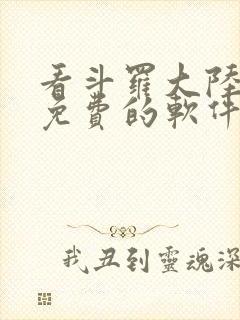 看斗羅大陸
免費的軟件
我丑到靈魂深